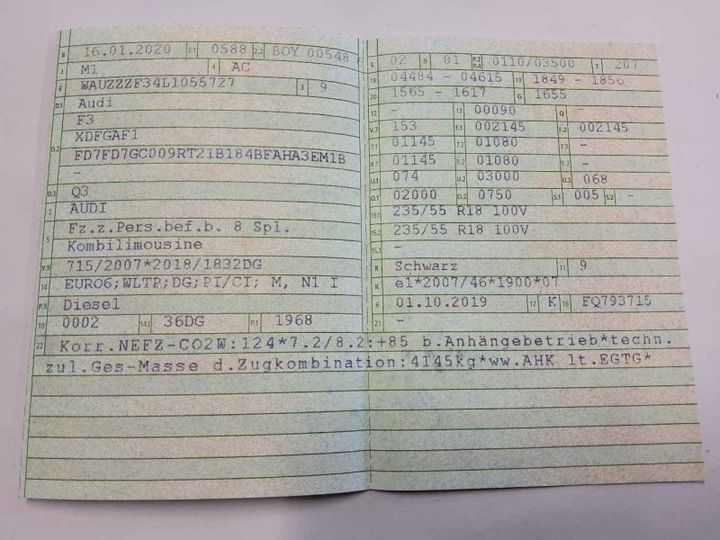 B 16.01.2020 2.1 0588 2.2 BOY 00548
J M1 4 AC
E WAUZZZF34L1055727 3 9
D.1 Audi
F3
XDFGAF1
D.2 FD7FD7GC009RT21B184BFAHA3EM1B
-
D.3 Q3
2 AUDI
5 Fz.z.Pers.bef.b. 8 Spl.
Kombilimousine
V.9 715/2007*2018/1832DG
14 EURO6;WLTP;DG;PI/CI; M, N1 I
P.3 Diesel
10 0002 14.1 36DG P.1 1968
L 02 9 01 P.2 P.4 0110/03500 T 207
18 04484 - 04616 19 1849 - 1856
20 1565 - 1617 G 1655
12 - 13 00090 Q -
V.7 153 F.1 002145 F.2 002145
7.1 01145 7.2 01080 7.3 -
8.1 01145 8.2 01080 8.3 -
U.1 074 U.2 03000 U.3 068
O.1 02000 O.2 0750 S.1 005 S.2 -
15.1 235/55 R18 100V
15.2 235/55 R18 100V
15.3 -
R Schwarz 11 9
K e1*2007/46*1900*07
6 01.10.2019 17 K 16 FQ793715
21 -
22 Korr.NEFZ-CO2W:124*7.2/8.2:+85 b.Anhängebetrieb*techn.
zul.Ges-Masse d.Zugkombination:4145kg*ww.AHK lt.EGTG*